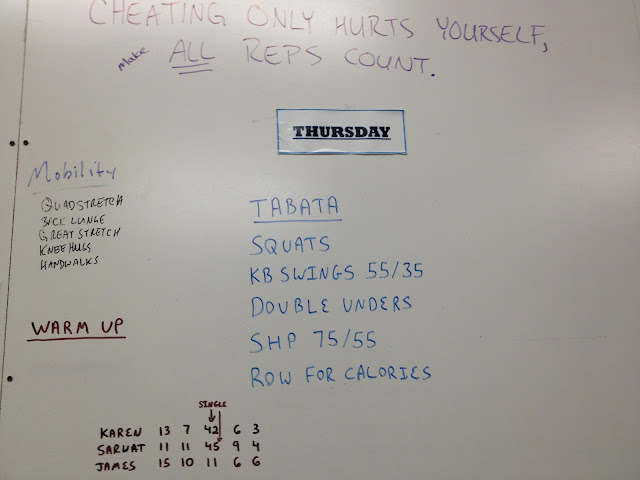 CHEATING ONLY HURTS YOURSELF,
Make ALL REPS COUNT.
THURSDAY
Mobility
QUADSTRETCH
BACK LUNGE
GREAT STRETCH
KNEE HUGS
HANDWALKS
WARM UP
TABATA
SQUATS
KB SWINGS 55/35
DOUBLE UNDERS
SHP 75/55
ROW FOR CALORIES
SINGLE
KAREN 13 7 42 6 3
SARVAT 11 11 45 9 4
JAMES 15 10 11 6 6